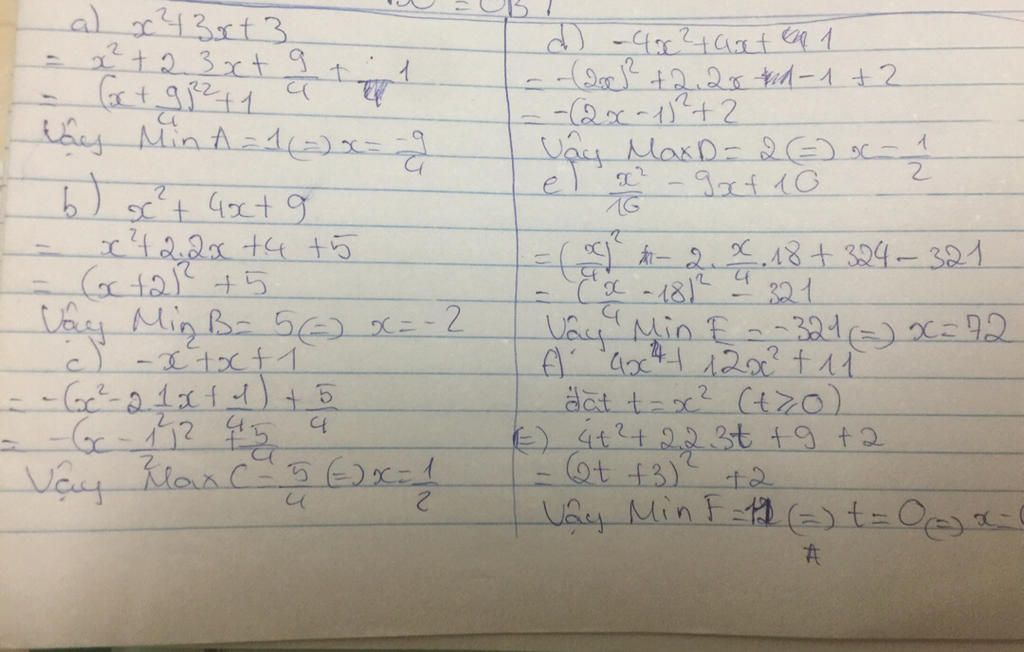 a) x²+3x+3
= x²+2.3x+9/4+1
= (x+9/4)²²+1
Vậy Min A=1(=) x=-9/4
b) x²+4x+9
= x²+2.2x+4+5
= (x+2)²+5
Vậy Min B=5(=) x=-2
c) -x²+x+1
= -(x²-2.1/2x+1/4)+5/4
= -(x-1/2)²+5/4
Vậy Max C=5/4(=) x=1/2
d) -4x²+4x+1
= -(2x)²+2.2x-1+2
= -(2x-1)²+2
Vậy Max D=2(=) x=1/2
e) x²/16-9x+10
= (x/4)²-2.x/4.18+324-321
= (x/4-18)²-321
Vậy Min E=-321(=) x=72
f) 4x⁴+12x²+11
đặt t=x² (t≥0)
(=) 4t²+2.2.3t+9+2
= (2t+3)²+2
Vậy Min F=11(=) t=0(=) x=